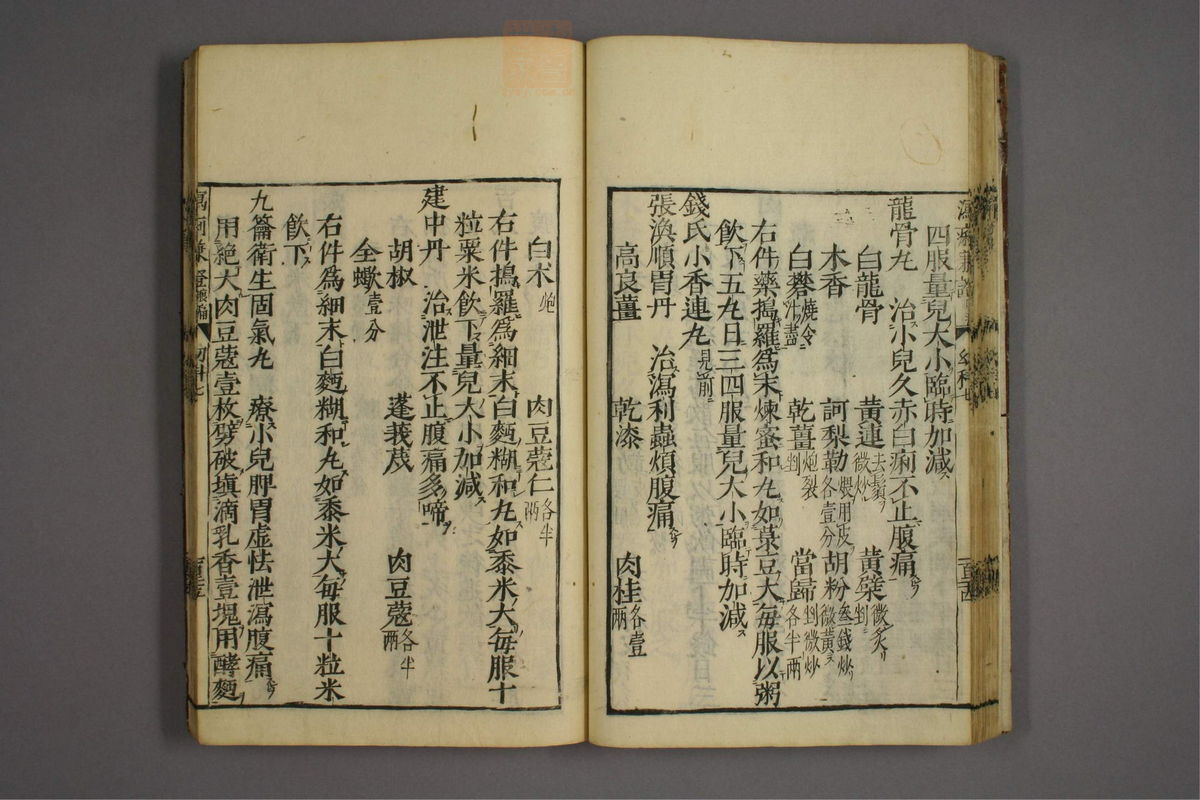 四服量兒大小臨時加減
龍骨丸 治小兒久赤白痢不止腹痛
白龍骨 黃連去鬚微炒 黃蘗微炙剉
木香 訶梨勒煨用皮各壹分 胡粉分叁錢炒微黃
白礬燒令汁盡 乾薑炮裂剉 當歸剉微炒各半兩
右件藥搗羅爲末煉蜜和丸如菉豆大每服以粥
飲下五丸日三四服量兒大小臨時加減
錢氏小香連丸見前
張渙順胃丹 治瀉利蟲煩腹痛
高良薑 乾漆 肉桂各壹兩
白朮炮 肉豆蔻仁各半兩
右件搗羅爲細末白麪糊和丸如黍米大每服十
粒粟米飲下量兒大小加減
建中丹 治泄注不止腹痛多啼
胡椒 蓬莪茂 肉豆蔻各半兩
全蠍壹分
右件爲細末白麪糊和丸如黍米大每服十粒米
飲下
九籥衛生固氣丸 療小兒脾胃虛怯泄瀉腹痛
用絶大肉豆蔻壹枚劈破塡滴乳香壹塊用酵麪